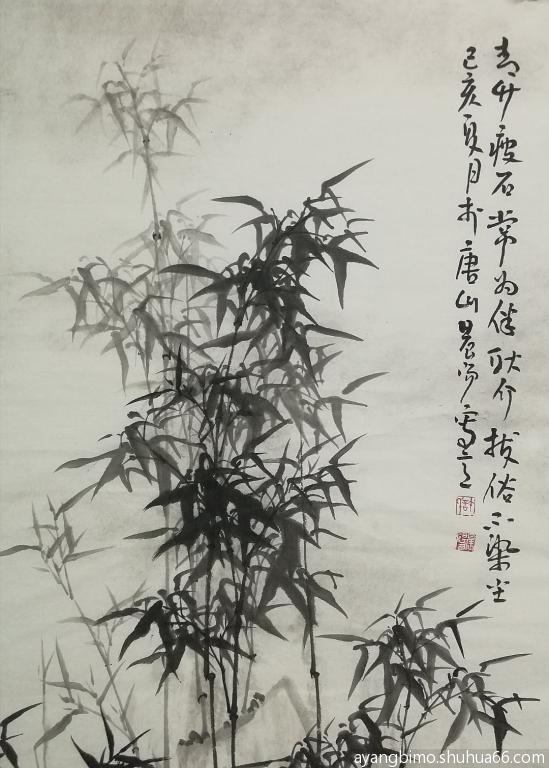 古竹瘦石常为伴耿介拔俗不染尘
己亥夏月于唐山晨峰写意
ayangbimo.shuhua66.com